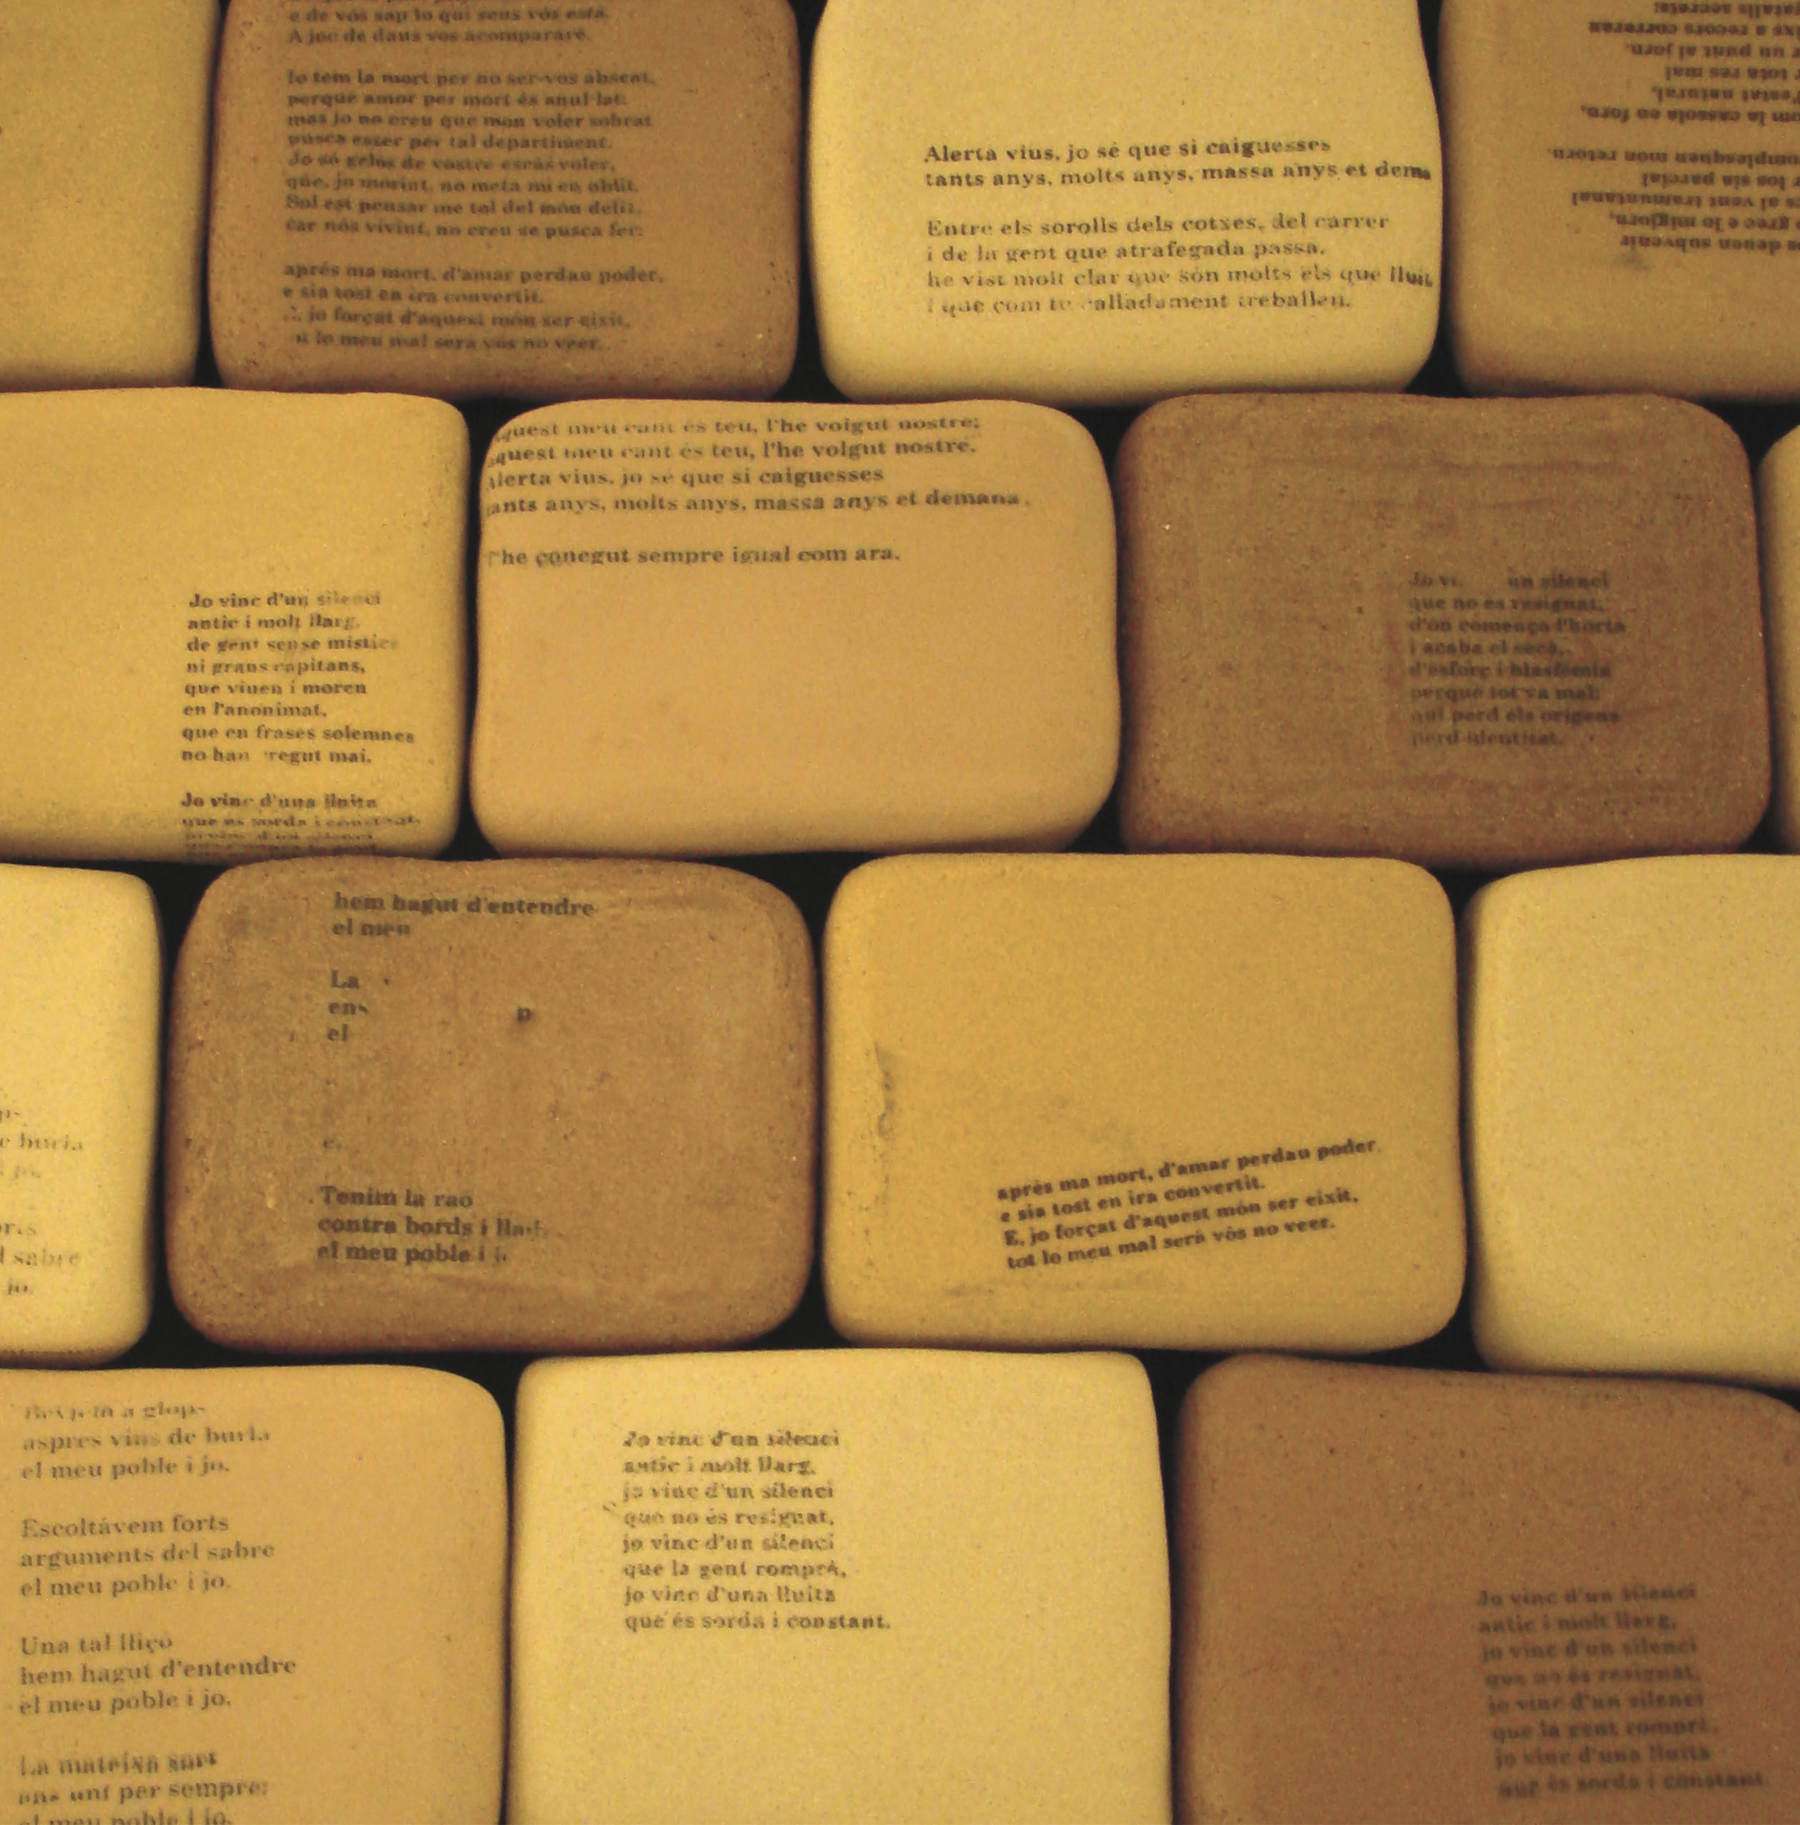 e de vós sap lo qui sens vós està.
A joc de daus vos acompararé.
Io tem la mort per no ser-vos absent,
perquè amor per mort és anul·lat;
mas jo no creu que mon voler sobrat
pusca esser per tal departiment.
Jo só gelós de vostre escàs voler,
que, jo morint, no meta mi en oblit.
Sol est pensar me tol del món delit,
car nós vivint, no creu se pusca fer:
aprés ma mort, d'amar perdau poder,
e sia tost en ira convertit.
jo forçat d'aquest món ser eixit,
lo meu mal serà vós no veer.
Alerta vius, jo sé que si caiguesses
tants anys, molts anys, massa anys et dema
Entre els sorolls dels cotxes, del carrer
i de la gent que atrafegada passa,
he vist molt clar que són molts els que lluit
i que com tu calladament treballen.
secrets:
a recors correran
r un punt al jorn,
r tota res mal
estat natural,
om la cassola en forn,
mon retorn.
r los sia parcial
es al vent tramuntanal
grec e lo migjorn,
s deuen subvenir
Jo vinc d'un silenci
antic i molt llarg,
de gent sense mística
ni grans capitans,
que viuen i moren
en l'anonimat,
que en frases solemnes
no han regut mai.
Jo vinc d'una lluita
que es sorda i constant,
quest meu cant és teu, l'he volgut nostre;
aquest meu cant és teu, l'he volgut nostre.
Alerta vius, jo sé que si caiguesses
ants anys, molts anys, massa anys et demana
T'he conegut sempre igual com ara.
Jo vi un silenci
que no es resignat,
d'on comença l'horta
i acaba el secà,
d'esforç i blasfèmia
perquè tot va mal:
qui perd els orígens
perd identitat.
e burla
sabre
jo.
hem hagut d'entendre
el meu
La
ens p
el
e
Tenim la raó
contra bords i llad
el meu poble i
aprés ma mort, d'amar perdau poder,
e sia tost en ira convertit.
E, jo forçat d'aquest món ser eixit,
tot lo meu mal serà vós no veer.
Bevíem a glops
aspres vins de burla
el meu poble i jo.
Escoltàvem forts
arguments del sabre
el meu poble i jo.
Una tal lliçó
hem hagut d'entendre
el meu poble i jo.
La mateixa sort
ens uní per sempre:
el meu poble i jo.
Jo vinc d'un silenci
antic i molt llarg,
jo vinc d'un silenci
que no és resignat,
jo vinc d'un silenci
que la gent romprà,
jo vinc d'una lluita
que és sorda i constant.
Jo vinc d'un silenci
antic i molt llarg,
jo vinc d'un silenci
que no és resignat,
jo vinc d'un silenci
que la gent romprà,
jo vinc d'una lluita
que és sorda i constant.